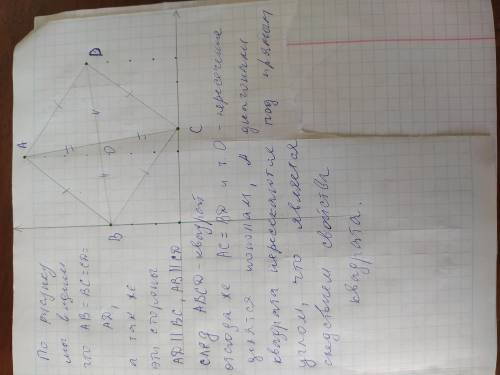 По рисунку
мы видим
что AB=BC=CD=
AD,
а так же
эти стороны
AD||BC, AB||CD
след ABCD-квадрат
отсюда же AC=BD и т.О - пересечение
делятся пополам, а диагонали
квадрата пересекаются под прямым
углом, что является
следствием свойства
квадрата.
A
D
B
C
O